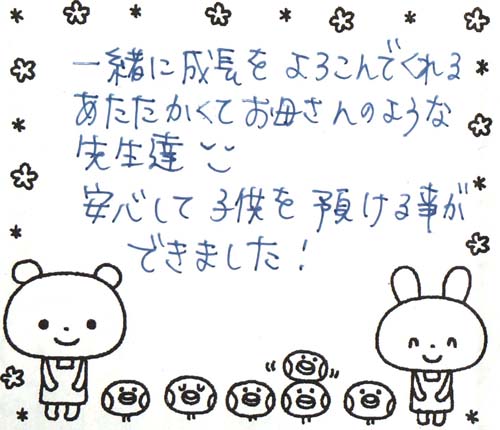 一緒に成長をよろこんでくれる
あたたかくてお母さんのような
先生達
安心して子供を預ける事が
できました!